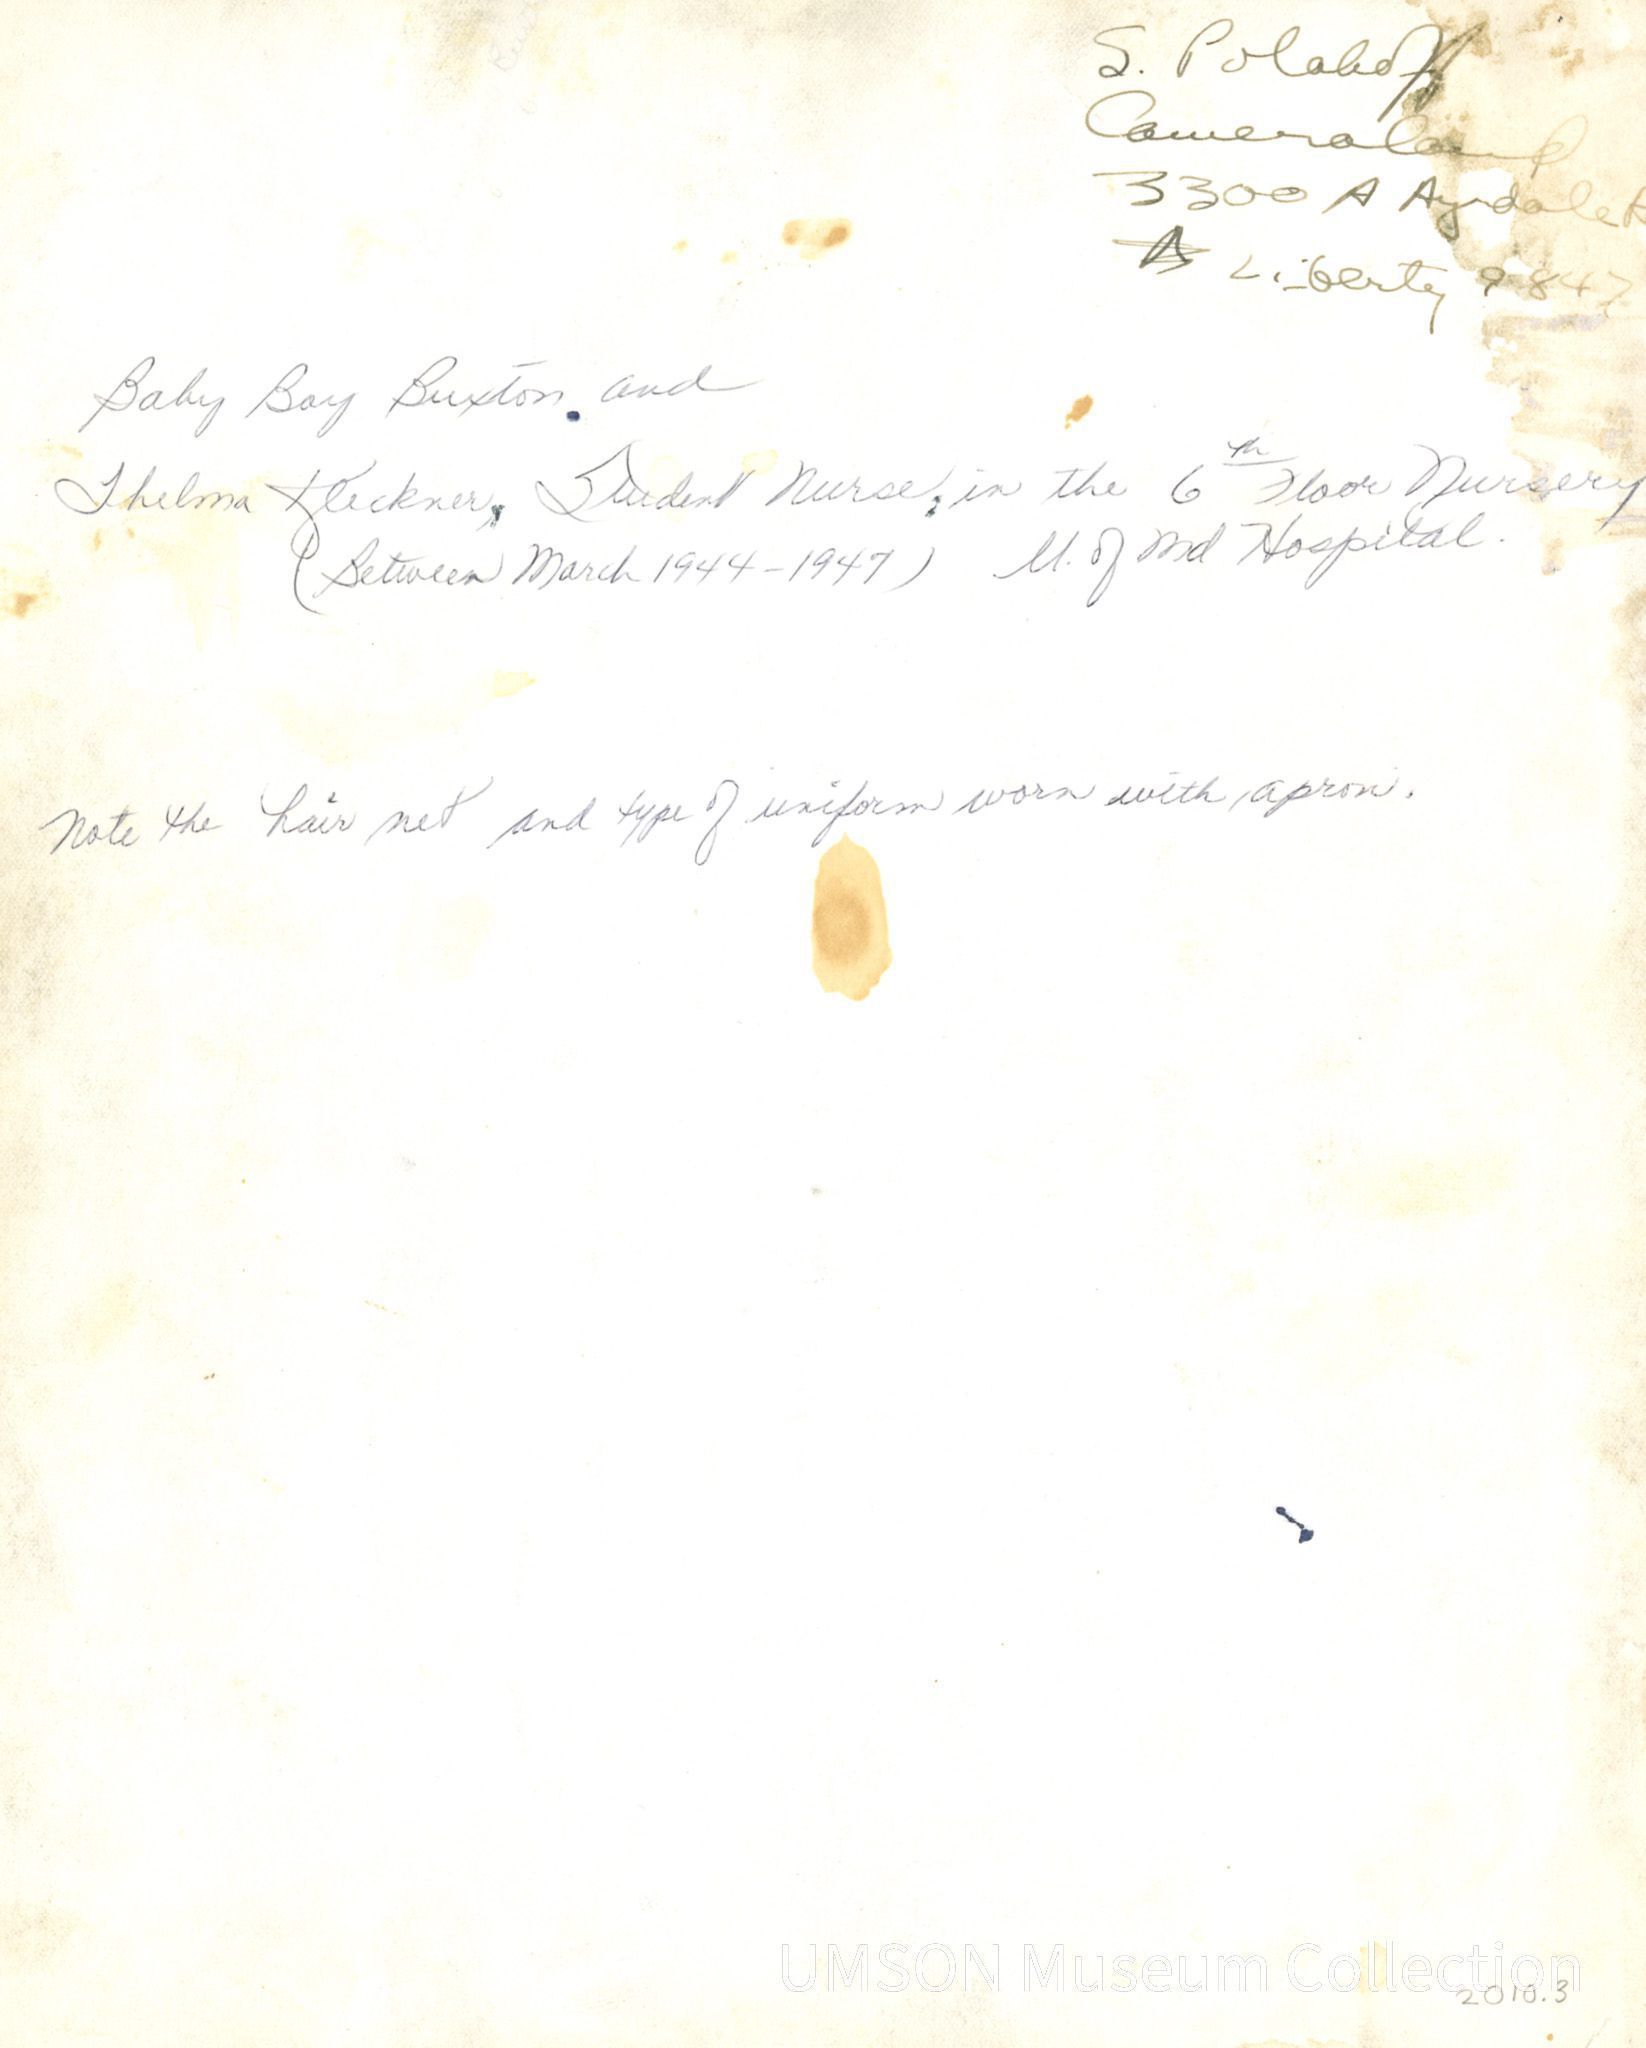 S. Polakoff
Cameraland
3300 A Ayrdale
Liberty 9847
Baby Boy Buxton and
Thelma Kleckner, Student Nurse, in the 6th Floor Nursery
(Between March 1944-1947) U. of Md Hospital.
Note the hair net and type of uniform worn with apron.
UMSON Museum Collection
2010.3